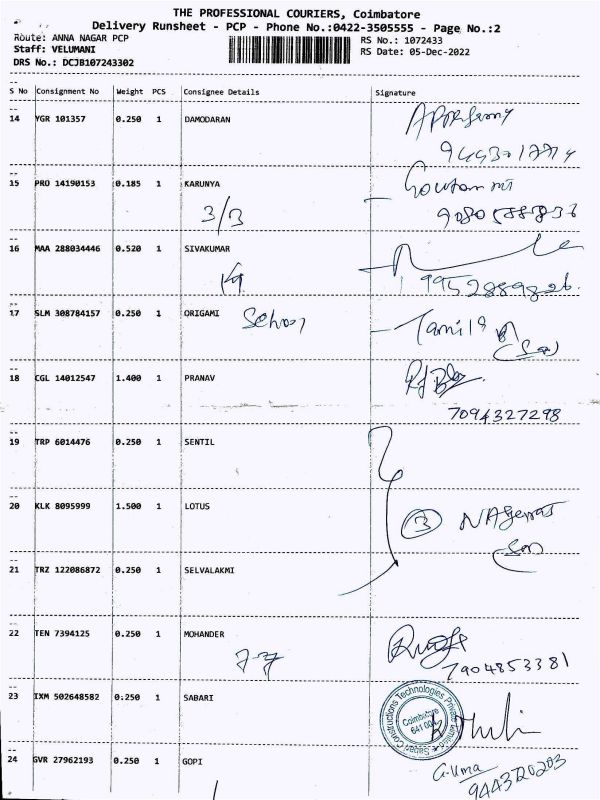 THE PROFESSIONAL COURIERS, Coimbatore
Delivery Runsheet - PCP - Phone No.:0422-3505555 - Page No.:2
Route: ANNA NAGAR PCP
RS No.: 1072433
Staff: VELUMANI
RS Date: 05-Dec-2022
DRS No.: DCJB107243302
S No Consignment No Weight PCS Consignee Details Signature
14 YGR 101357 0.250 1 DAMODARAN
15 PRO 14190153 0.185 1 KARUNYA
3/3
16 MAA 288034446 0.520 1 SIVAKUMAR
9952889826.
17 SLM 308784157 0.250 1 ORIGAMI School
18 CGL 14012547 1.400 1 PRANAV
7094327298
19 TRP 6014476 0.250 1 SENTIL
20 KLK 8095999 1.500 1 LOTUS
3
21 TRZ 122086872 0.250 1 SELVALAKMI
22 TEN 7394125 0.250 1 MOHANDER
7904853381
23 IXM 502648582 0.250 1 SABARI
Constructions Technologies Private Limited
Coimbatore
24 GVR 27962193 0.250 1 GOPI
G.Uma
9443720203